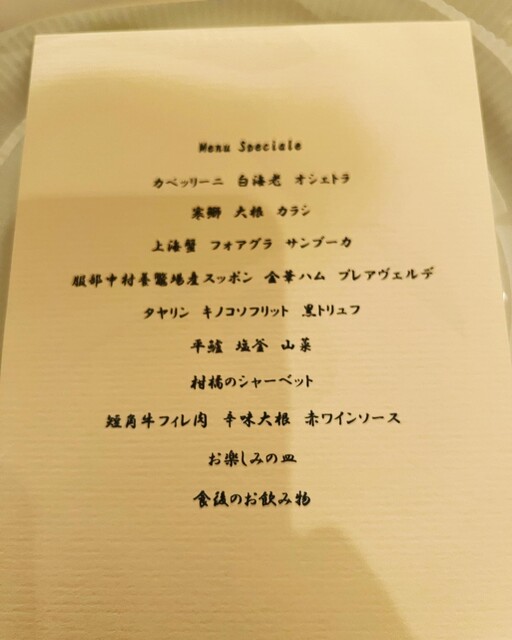 Menu Speciale
カペッリーニ 白海老 オシェトラ
寒鰤 大根 カラシ
上海蟹 フォアグラ サンブーカ
服部中村養鼈場産スッポン 金華ハム プレアヴェルデ
タヤリン キノコソフリット 黒トリュフ
平鱸 塩釜 山菜
柑橘のシャーベット
短角牛フィレ肉 辛味大根 赤ワインソース
お楽しみの皿
食後のお飲み物